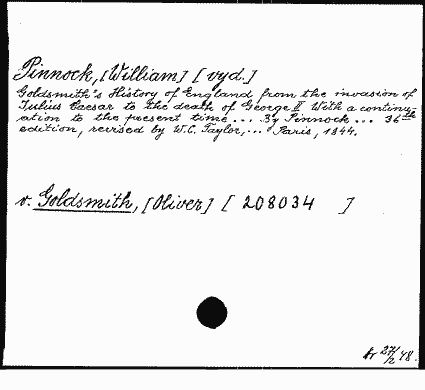 Pinnock, [William] [vyd.]
Goldsmith's History of England from the invasion of
Julius Caesar to the death of George II With a continu-
ation to the present time... By Pinnock... 36th
edition, revised by W.C. Taylor,... Paris, 1844.
v. Goldsmith, [Oliver] [ 208034 ]
27/2 48.